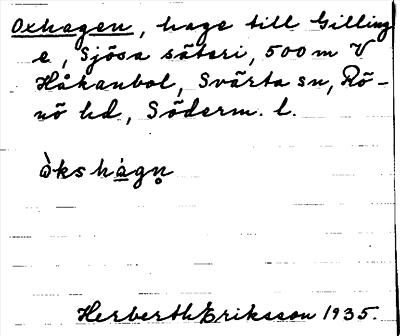 Oxhagen, hage till Gilling
e, Sjösa säteri, 500 m V
Håkanbol, Svärta sn, Rö-
nö hd, Söderm. l.
òkshág̲n̥
Herberth Eriksson 1935.